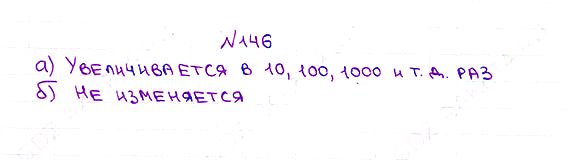 №146
а) Увеличивается в 10, 100, 1000 и т.д. раз
б) не изменяется